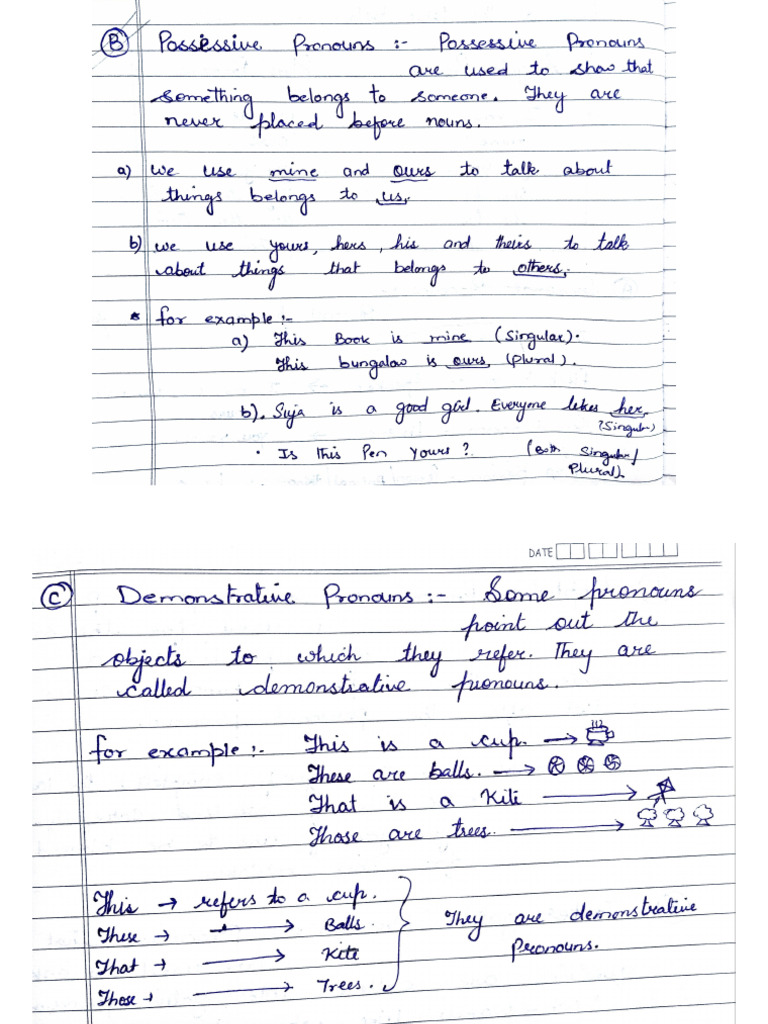 B Possessive Pronouns :- Possessive Pronouns
are used to show that
something belongs to someone. They are
never placed before nouns.
a) we use mine and ours to talk about
things belongs to us.
b) we use yours, hers, his and theirs to talk
about things that belongs to others.
* for example :-
a) This Book is mine (Singular).
This bungalow is ours, (Plural).
b). Suja is a good girl. Everyone likes her.
(Singular)
• Is this Pen yours? (Both Singular/
Plural).
DATE
C Demonstrative Pronouns :- Some pronouns
point out the
objects to which they refer. They are
called demonstrative pronouns.
for example :- This is a cup. →
These are balls. →
That is a Kite →
Those are trees. →
This → refers to a cup.
These → → Balls.
That → → Kite
Those → → Trees.
They are demonstrative
Pronouns.